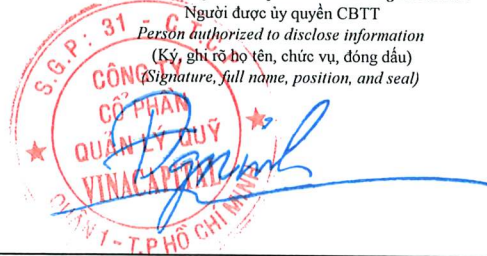 Người được ủy quyền CBTT
Person authorized to disclose information
(Ký, ghi rõ họ tên, chức vụ, đóng dấu)
(Signature, full name, position, and seal)
S.G.P: 31 - C.T.C.P
CÔNG TY
CỔ PHẦN
QUẢN LÝ QUỸ
VINACAPITAL
QUẬN 1 - T.P HỒ CHÍ MINH